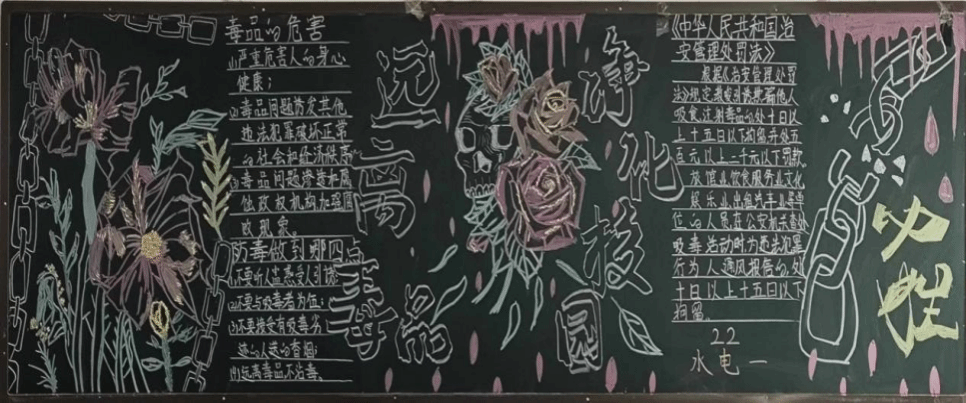 毒品的危害
(1)严重危害人的身心
健康；
(2)毒品问题诱发其他
违法犯罪破坏正常
的社会和经济秩序
(3)毒品问题渗透和腐
蚀政权机构加强腐
败现象。
防毒做到哪四点
(1)不要听人
(2)不要与吸毒者为伍；
(3)不要接受有吸毒劣
迹的人送的香烟；
(4)远离毒品不沾毒。
远离
毒品
净化
校园
《中华人民共和国治
安管理处罚法》
根据《治安管理处罚
法》规定教唆引诱欺骗他人
吸食注射毒品的处十日以
上十五日以下拘留并处五
百元以上二千元以下罚款
旅馆业饮食服务业文化
娱乐业出租汽车业等单
位的人员在公安机关查处
吸毒活动时为违法犯罪
行为人通风报信的处
十日以上十五日以下
拘留
22
水电一